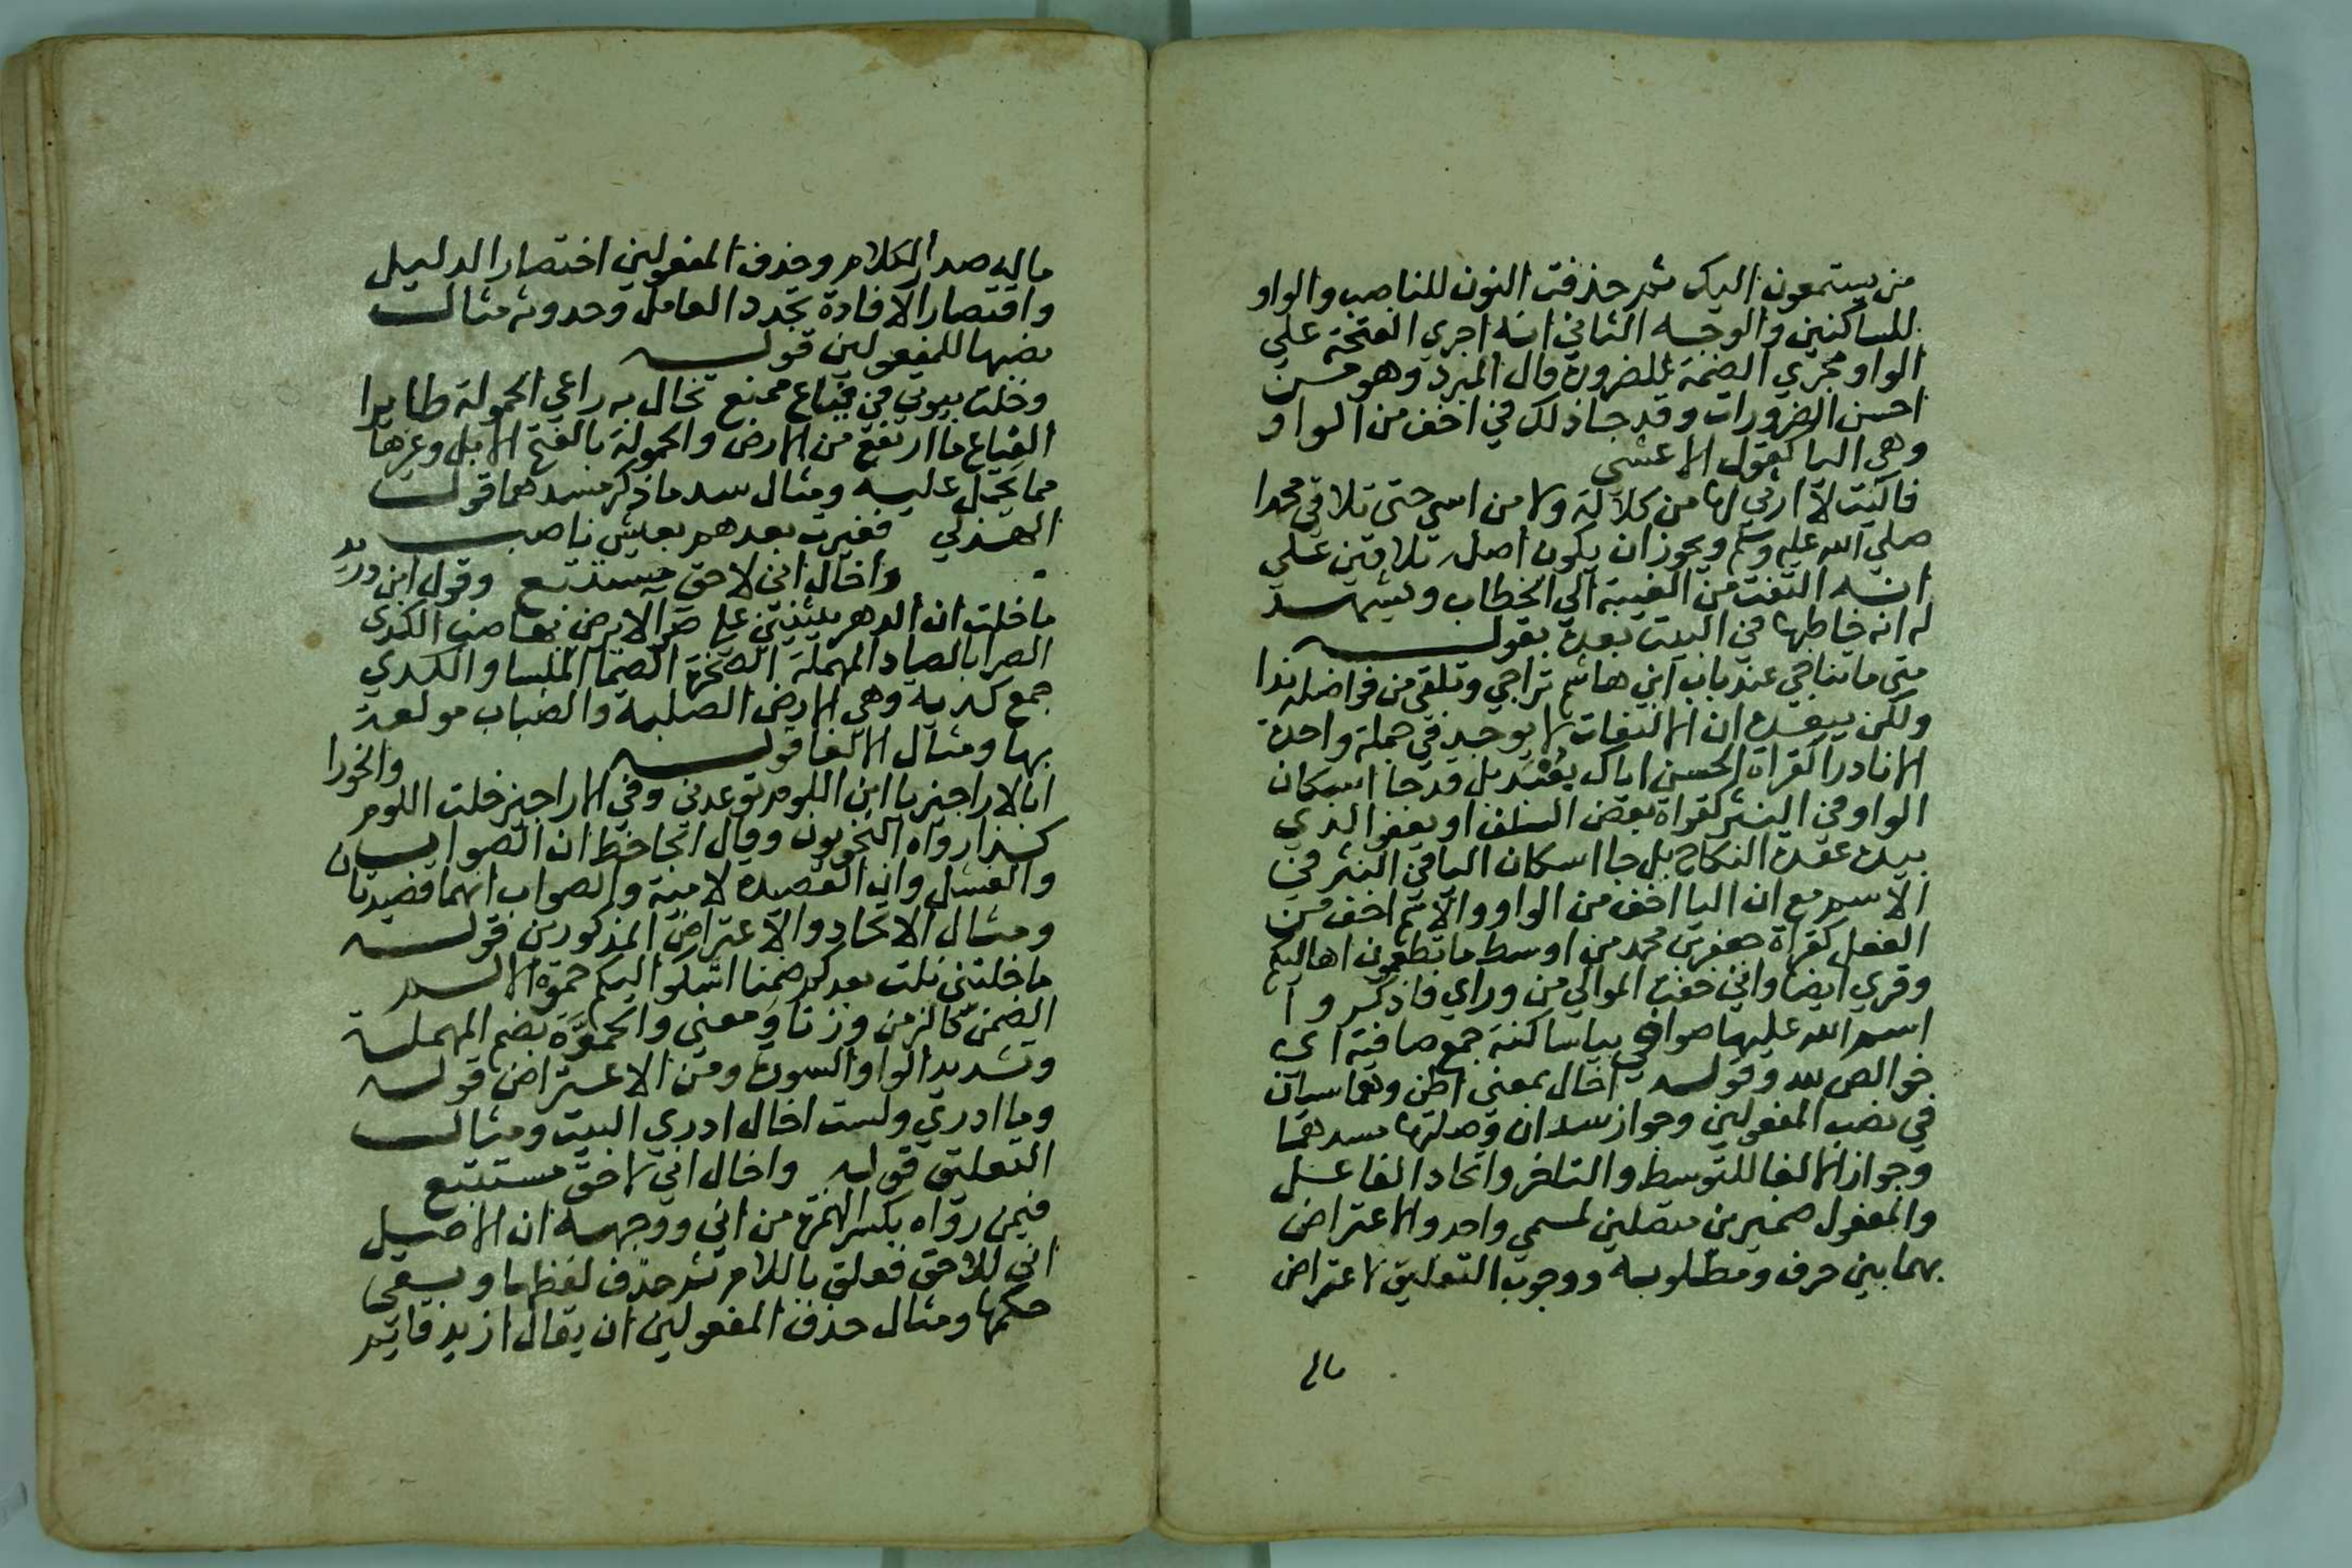 من يستمعون اليك ثم حذفت النون للناصب والواو
للساكنين والوجه الثاني انه اجري الفتحة علي
الواو مجري الضمة للضرورة قال المبرد وهو من
احسن الضرورات وقد جا ذلك في اخف من الواو
وهي اليا كقول الاعشي
فاليت لا ارثي لها من كلالة ولا من اسي حتى تلاقي محمدا
صلي الله عليه وسلم ويجوز ان يكون اصله تلاقين علي
انه التفت من الغيبة الي الخطاب ويشهد
له انه خاطبها في البيت بعده بقوله
متى ما تناخي عند باب ابن هاشم تراحي وتلقي من فواضله ندا
ولكن يبعده ان الالتفات لا يوجد في جملة واحدة
الا نادرا كقراة الحسن اياك يعبد بل قد جا اسكان
الواو في النثر كقراة بعض السلف او يعفو الذي
بيده عقدة النكاح بل جا اسكان اليا في النثر في
الاسم مع ان اليا اخف من الواو والاسم اخف من
الفعل كقراة جعفر بن محمد من اوسط ما تطعمون اهاليكم
وقري ايضا واني خفت الموالي من وراي فاذكروا
اسم الله عليها صوافي بيا ساكنة جمع صافية اي
خوالص لله وقوله اخال بمعنى اظن وهما سيان
في نصب المفعولين وجواز سد ان وصلتها مسدهما
وجواز الالغا للتوسط والتاخر واتحاد الفاعل
والمفعول ضميرين متصلين لمسمي واحد والاعتراض
بهما بين حرف ومطلوبه ووجوب التعليق لاعتراض
ماله
ماله صدر الكلام وحذف المفعولين اختصارا لدليل
واقتصارا لافادة تجدد العامل وحدوثه مثال
نصبها للمفعولين قوله
وخلت بيوتي في يفاع ممنع تخال به راعي الحمولة طايرا
اليفاع ما ارتفع من الارض والحمولة بالفتح الابل وغيرها
مما يحمل عليه ومثال سد ما ذكر مسدهما قول
الهذلي فغبرت بعدهم بعيش ناصب
واخال اني لاحق مستتبع وقول ابن دريد
ما خلت ان الدهر يثنيني علي ضرا لا يرضي بها ضب الكدى
الصرا بالصاد المهملة الصخرة الصما الملسا والكدي
جمع كدية وهي الارض الصلبة والضباب مولعة
بها ومثال الالغا قوله
ابا لاراجيز يا ابن اللوم توعدني وفي الاراجيز خلت اللوم والخورا
كذا رواه النحويون وقال الجاحظ ان الصواب
والفشل وان القصيدة لامية والصواب انهما قصيدتان
ومثال الاتحاد والاعتراض المذكورين قوله
ما خلتني زلت بعدكم ضمنا اشكوا اليكم حموة الالم
الضمن كالزمن وزنا ومعنى والحموة بضم المهملة
وتشديد الواو السورة ومن الاعتراض قوله
وما ادري ولست اخال ادري البيت ومثال
التعليق قوله واخال اني لاحق مستتبع
فيمن رواه بكسر الهمزة من اني ووجهه ان الاصل
اني للاحق فعلق باللام ثم حذف لفظها وبقي
حكمها ومثال حذف المفعولين ان يقال ازيد قايم